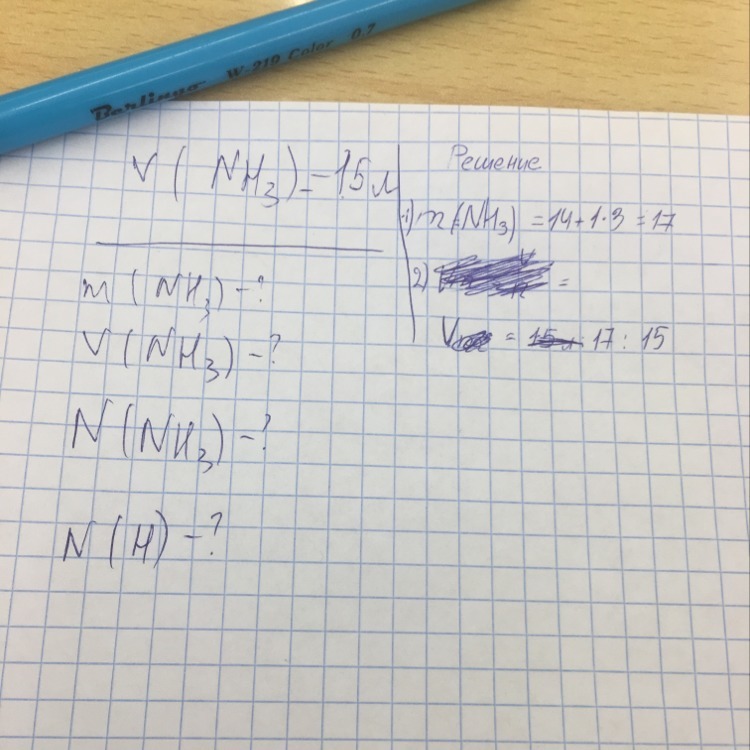 Berlingo W-219 Color 0.7
V ( NH3) = 15 л
m ( NH3) - ?
V (NH3) - ?
N (NH3) - ?
N (H) - ?
Решение
1) m (NH3) = 14 + 1·3 = 17
2) =
V = 17 : 15